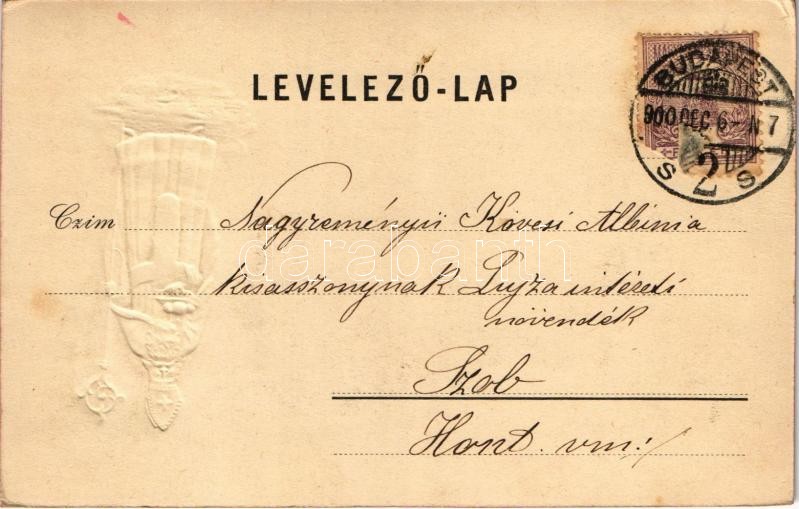 LEVELEZŐ-LAP
BUDAPEST
900 DEC 6 - N 7
S 2 S
Czim Nagyreményü Kövesi Albinia
kisasszonynak Lujza intézeti
növendék
Szob
Hont. vm:
darabanth